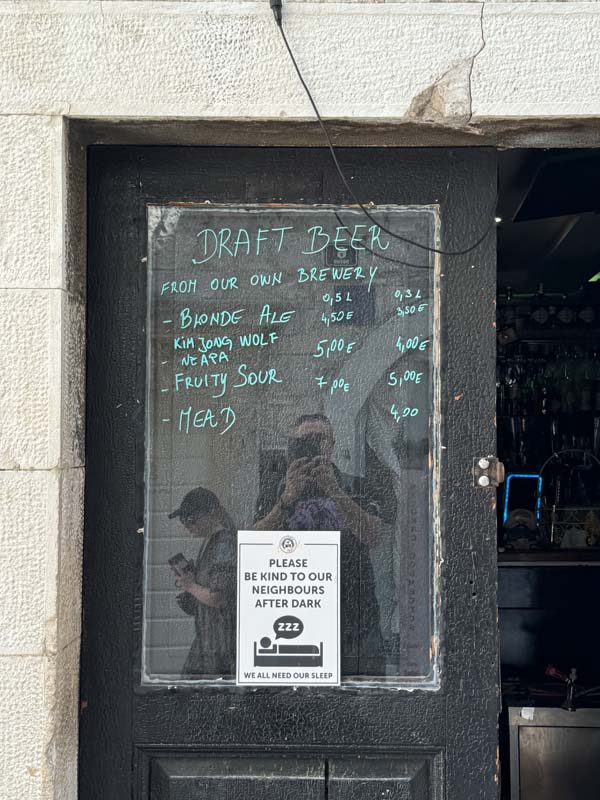 DRAFT BEER
FROM OUR OWN BREWERY
0,5 L 0,3 L
- BLONDE ALE 4,50E 3,50E
KIM JONG WOLF
- NEAPA 5,00E 4,00E
- FRUITY SOUR 7,00E 5,00E
- MEAD 4,00
PLEASE
BE KIND TO OUR
NEIGHBOURS
AFTER DARK
ZZZ
WE ALL NEED OUR SLEEP